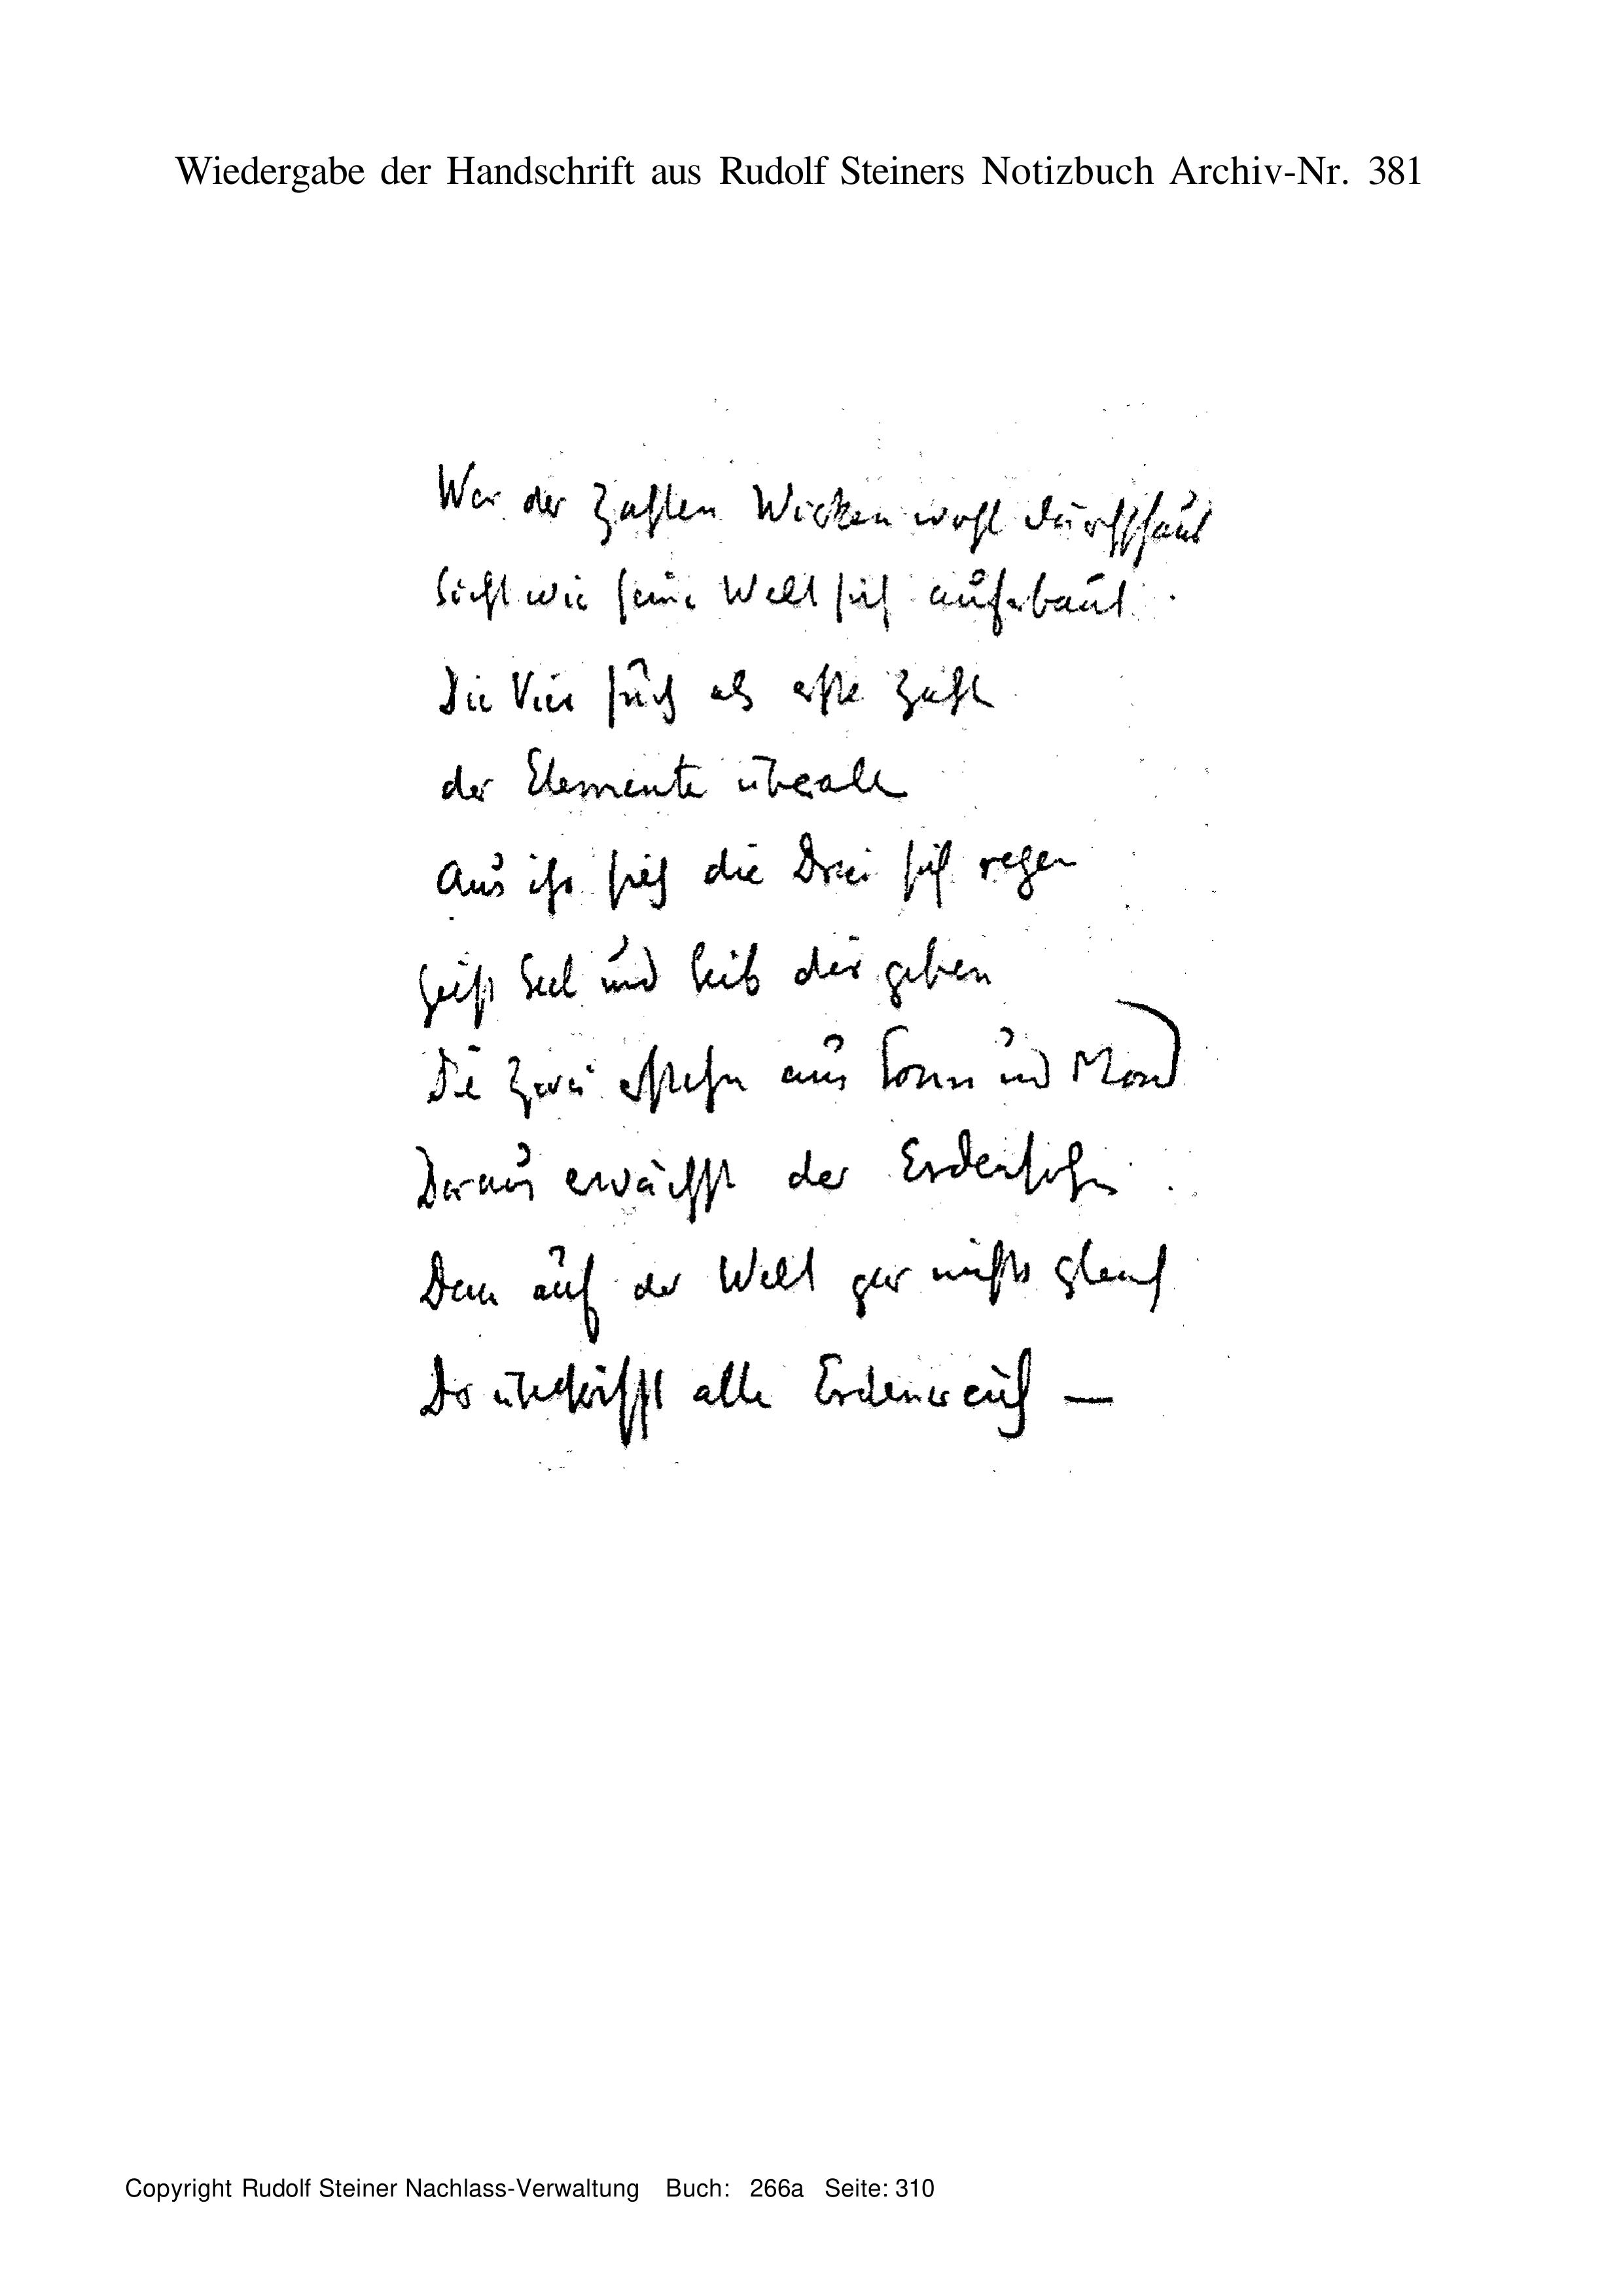 Wiedergabe der Handschrift aus Rudolf Steiners Notizbuch Archiv-Nr. 381
Wer der Zahlen Wirken wohl durchschaut
Sieht wie seine Welt sich aufbaut.
Die Vier such als erste Zahl
der Elemente überall
Aus ihr sieh die Drei sich regen
Geist Seel und Leib dir geben
Die Zwei erstehn aus Sonn und Mond
Daraus erwächst der Erdensohn.
Dem auf der Welt gar nichts gleich
Der übertrifft alle Erdenreich —
Copyright Rudolf Steiner Nachlass-Verwaltung Buch: 266a Seite: 310